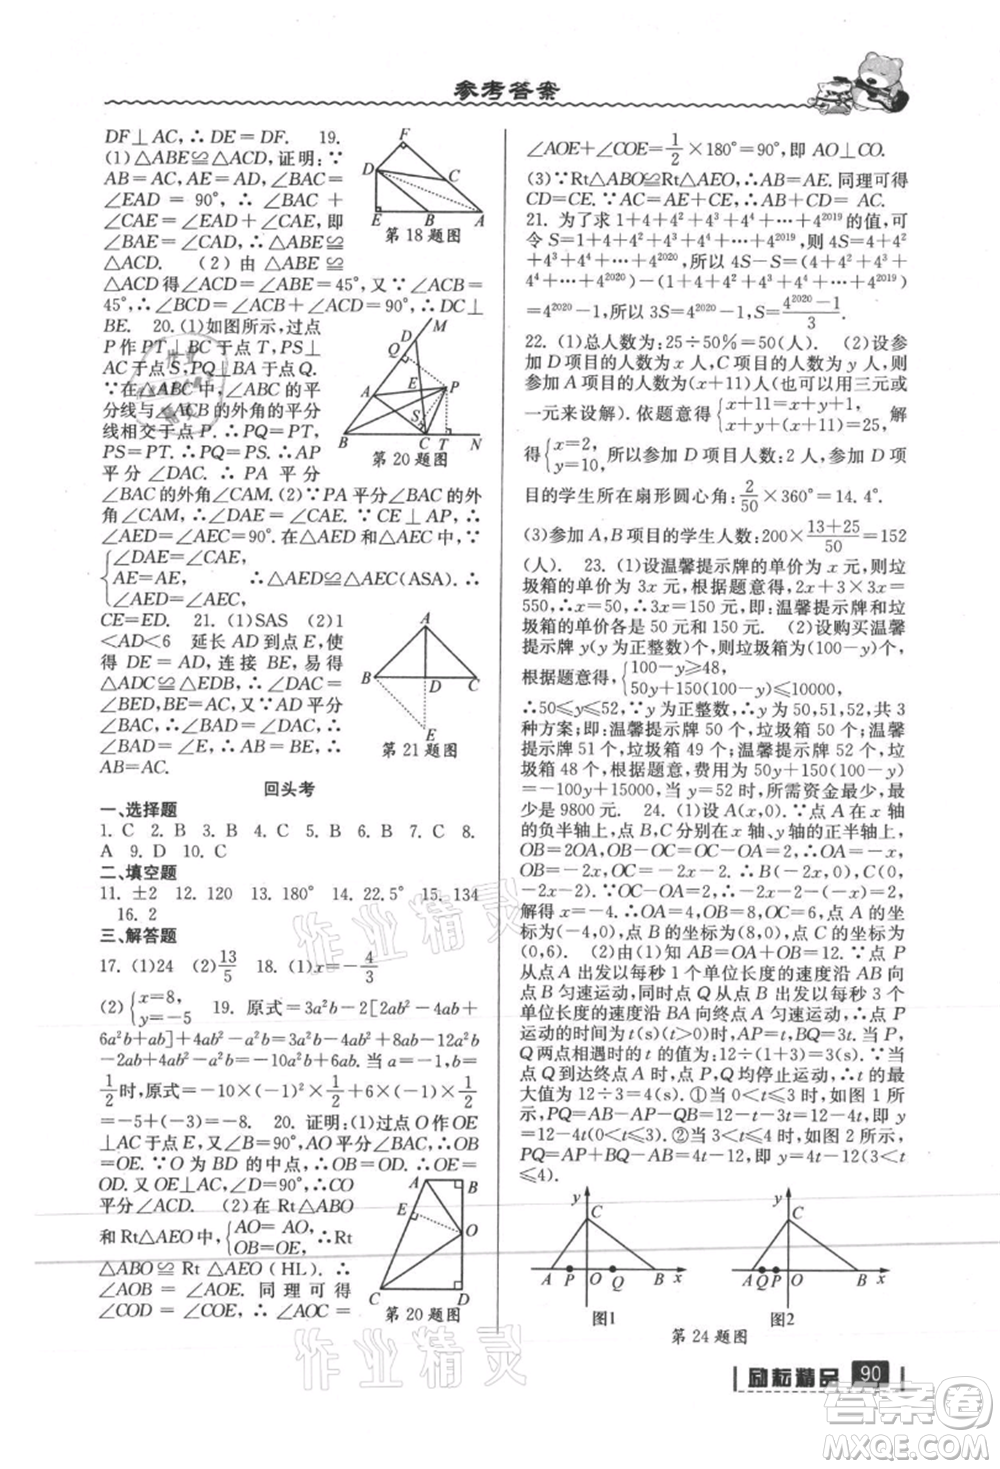 参考答案
DF⊥AC,∴DE=DF. 19.
(1)△ABE≌△ACD,证明:∵
AB=AC,∠BAC=
∠EAD=90°,∴∠BAC+
∠CAE=∠EAD+∠CAE,即
∠BAE=∠CAD,∴△ABE≌
△ACD. (2)由△ABE≌
△ACD得∠ACD=∠ABE=
45°,又∵∠ACB=
45°,∴∠BCD=∠ACB+∠ACD=90°,∴DC⊥
BE. 20.(1)如图所示,过点
P作PT⊥BC于点T,PS⊥AC
于点S,PQ⊥BA于点Q.
∵在△ABC中,∠ABC的平
分线与∠ACB的外角的平分
线相交于点P,∴PQ=PT,
PS=PT.∴PQ=PS,∴AP
平分∠DAC,∴PA平分
∠BAC的外角∠CAM. (2)∵PA平分∠BAC的外
角∠CAM,∴∠DAE=∠CAE.∵CE⊥AP,∴
∠AED=∠AEC=90°.在△AED和△AEC中,
{∠DAE=∠CAE,
AE=AE, ∴△AED≌△AEC(ASA).∴
∠AED=∠AEC,
CE=ED. 21.(1)SAS (2)1
<AD<6 延长AD到点E,使
得DE=AD,连接BE,易得
△ADC≌△EDB,∴∠DAC=
∠BED,BE=AC,又∵AD平分
∠BAC,∴∠BAD=∠DAC,∴
∠BAD=∠BED,∴AB=BE,∴
AB=AC.
F
D
C
E
B
A
第18题图
M
D
Q
A
E
P
S
B
C
T
N
第20题图
A
B
D
C
E
第21题图
回头考
一、选择题
1.C 2.B 3.B 4.C 5.C 6.B 7.C 8.
A 9.D 10.C
二、填空题
11.±2 12.120 13.180° 14.22.5° 15.134
16.2
三、解答题
17.(1)24 (2)13/5 18.(1)x=-4/3
(2){x=8, y=-5 19.原式=3a²b-2[2ab²-4ab+
6a²b+ab]+4ab²=3a²b-4ab²+8ab-12a²b
-2ab+4ab²=-10a²b+6ab.当a=-1,b=
1/2时,原式=-10×(-1)²×1/2+6×(-1)×1/2
=-5+(-3)=-8. 20.证明:(1)过点O作OE
⊥AC于点E,又∠B=90°,AO平分∠BAC,∴OB
=OE.∵O为BD的中点,∴OB=OD,∴OE=
OD.又∵OE⊥AC,∠D=90°,∴CO
平分∠ACD. (2)在Rt△ABO
和Rt△AEO中,{AO=AO, OB=OE,∴Rt
△ABO≌Rt△AEO(HL),∴
∠AOB=∠AOE.同理可得
∠COD=∠COE,∴∠AOC=
A
B
E
O
C
D
第20题图
∠AOE+∠COE=1/2×180°=90°,即AO⊥CO.
(3)∵Rt△ABO≌Rt△AEO,∴AB=AE.同理可得
CD=CE.∵AC=AE+CE,∴AB+CD=AC.
21.为了求1+4+4²+4³+4⁴+…+4²⁰¹⁹的值,可
令S=1+4+4²+4³+4⁴+…+4²⁰¹⁹,则4S=4+4²
+4³+4⁴+…+4²⁰²⁰,所以4S-S=(4+4²+4³+4⁴
+…+4²⁰²⁰)-(1+4+4²+4³+4⁴+…+4²⁰¹⁹)
=4²⁰²⁰-1,所以3S=4²⁰²⁰-1,S=(4²⁰²⁰-1)/3.
22.(1)总人数为:25÷50%=50(人). (2)设参
加D项目的人数为x人,C项目的人数为y人,则
参加A项目人数为(x+11)人(也可以用三元或者
一元来设解).依题意得{x+11=x+y+1, x+y+(x+11)=25, 解
得{x=2, y=10,所以参加D项目人数:2人,参加D项
目的学生所在扇形圆心角:2/50×360°=14.4°.
(3)参加A,B项目的学生人数:200×(13+25)/50=152
(人). 23.(1)设温馨提示牌的单价为x元,则垃
圾箱的单价为3x元,根据题意得,2x+3×3x=
550,∴x=50,∴3x=150元,即:温馨提示牌和垃
圾箱的单价各是50元和150元. (2)设购买温馨
提示牌y(y为正整数)个,则垃圾箱为(100-y)个,
根据题意得,{100-y≥48, 50y+150(100-y)≤10000,
∴50≤y≤52,∵y为正整数,∴y为50,51,52,共3
种方案;即:温馨提示牌50个,垃圾箱50个;温馨
提示牌51个,垃圾箱49个;温馨提示牌52个,垃圾
箱48个,根据题意,费用为50y+150(100-y)=
-100y+15000,当y=52时,所需资金最少,最少
是9800元. 24.(1)设A(x,0).∵点A在x轴
的负半轴上,点B,C分别在x轴、y轴的正半轴上,
OB=2OA,OB-OC=OA=2,∴B(-2x,0),C(0,
-2x-2).∵OC-OA=2,∴-2x-2-(-x)=2,
解得x=-4,∴OA=4,OB=8,OC=6,∴点A的坐标为
(-4,0),点B的坐标为(8,0),点C的坐标为
(0,6). (2)由(1)知AB=OA+OB=12.∵点P
从点A出发以每秒1个单位长度的速度沿着AB向
点B匀速运动,同时点Q从点B出发以每秒3个
单位长度的速度沿BA向终点A匀速运动,∴点P
运动的时间为t(s)(t>0)时,AP=t,BQ=3t.当P,
Q两点相遇时的t的值为:12÷(1+3)=3.∵当点Q
到达终点A时,点P,Q均停止运动,∴此时的t的最
大值为12÷3=4.①当0<t<3时,如图1所
示,PQ=AB-AP-BQ=12-t-3t=12-4t,即y
=12-4t(0<t<3).②当3<t≤4时,如图2所示,
PQ=AP+BQ-AB=t+3t-12=4t-12,即y=4t-12(3<t
≤4).
y
C
A
P
O
Q
B
x
图1
y
C
A
Q
P
O
B
x
图2
第24题图
励耘精品 90
作业精灵
作业精灵
答案圈
MXQE.COM